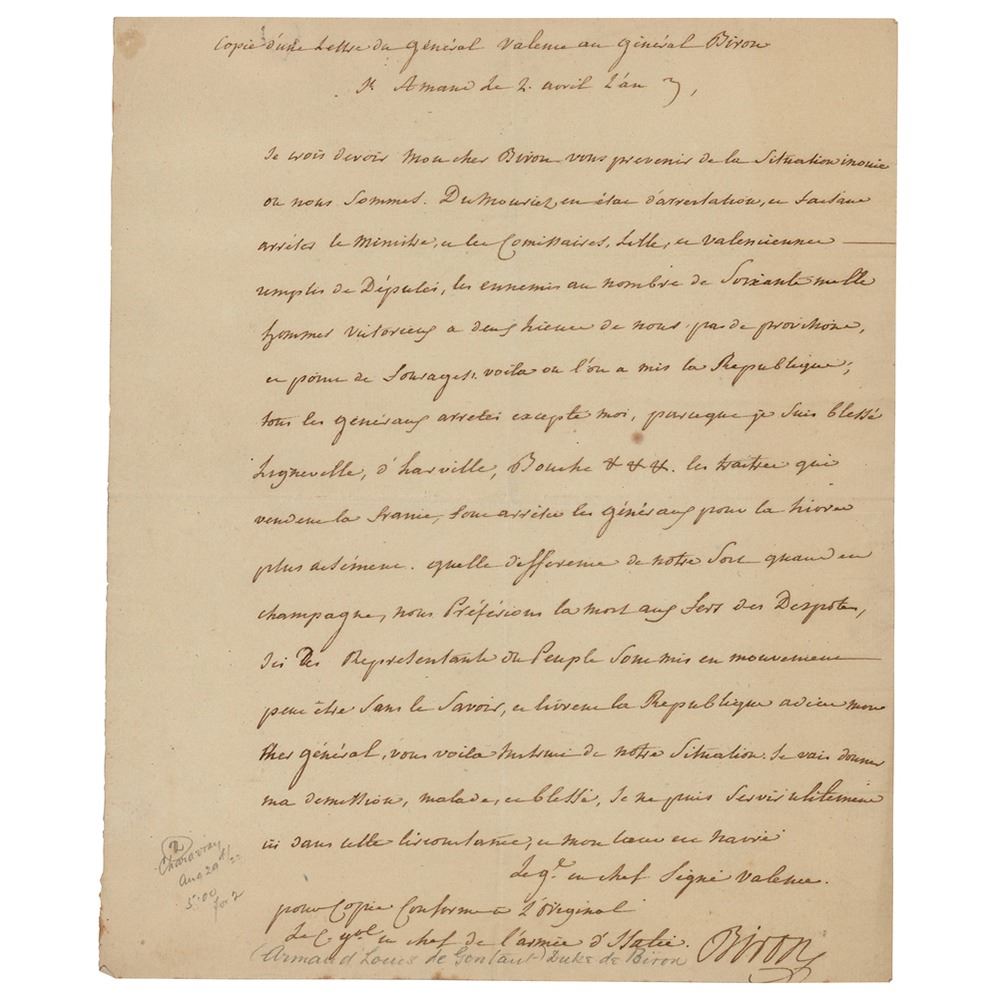 Copie d'une Lettre du général Valence au général Biron
St Amand Le 2. avril L'an
Je crois devoir Mon cher Biron vous prevenir de la Situation inouie
ou nous Sommes. DuMouriez en état d'arrestation, et faisant
arrêter le Ministre, et les Commissaires, Lille, et valenciennes
remplis de Députés, les ennemis au nombre de Soixante mille
hommes victorieux a deux lieues de nous. pas de provisions,
et point de fourages. voila ou l'on a mis la Republique;
tous les généraux arretés excepté moi, parceque je Suis blessé
Ligneville, d'harville, Bouchet &&&. les traitres qui
vendent la france, font arrêter les généraux pour la livrer
plus aisément. quelle difference de notre Sort quand en
champagne, nous Préférions la mort aux fers des Despotes,
Ici Des Representants du Peuple Sont mis en mouvement
peut être Sans le Savoir, et livrent la Republique adieu mon
Cher général, vous voila Instruit de notre Situation. Je vais donner
ma demission, malade, et blessé, Je ne puis Servir utilement
ici dans cette Circonstance, et mon Cœur en navré
Le gl. en chef Signé Valence.
pour Copie Conforme à L'original
Le gral en chef de l'armée d'Italie. Biron
(Armand Louis de Gontaut) Duke de Biron
2
Charavay
Aug 29
5.00
for 2